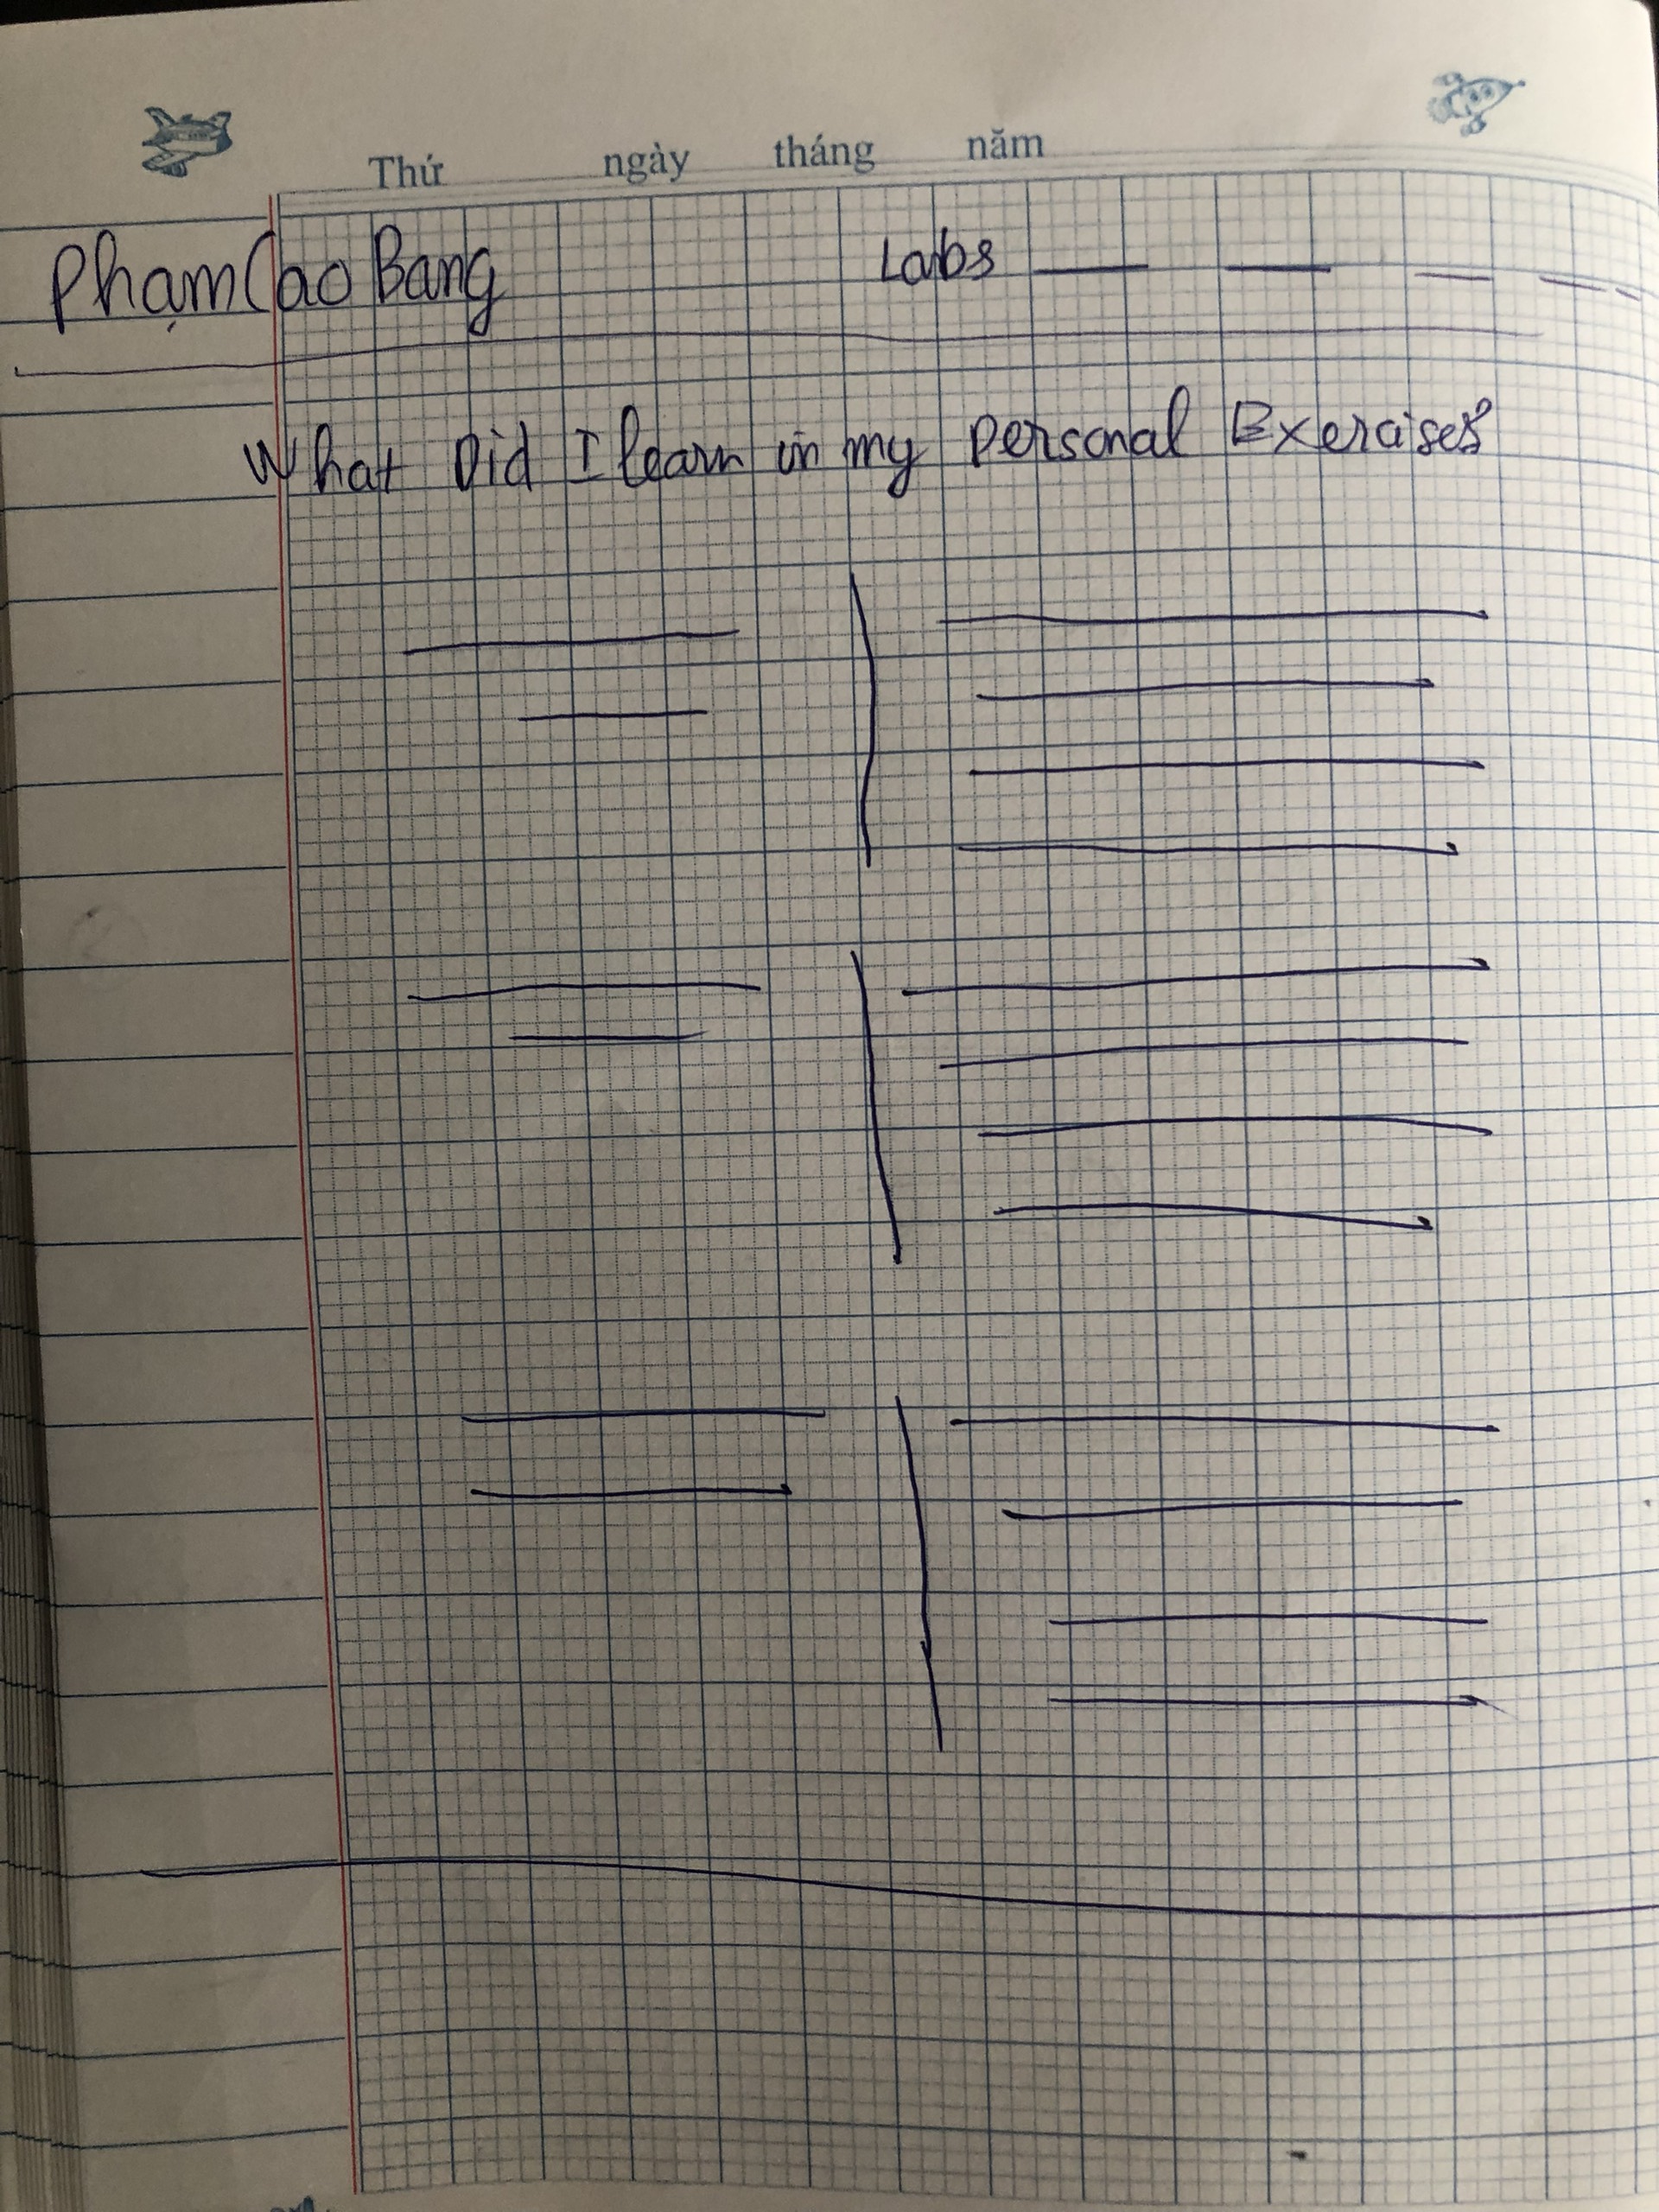 Thứ ngày tháng năm
Phạm Cao Bang Labs
What Did I learn in my Personal Exercises